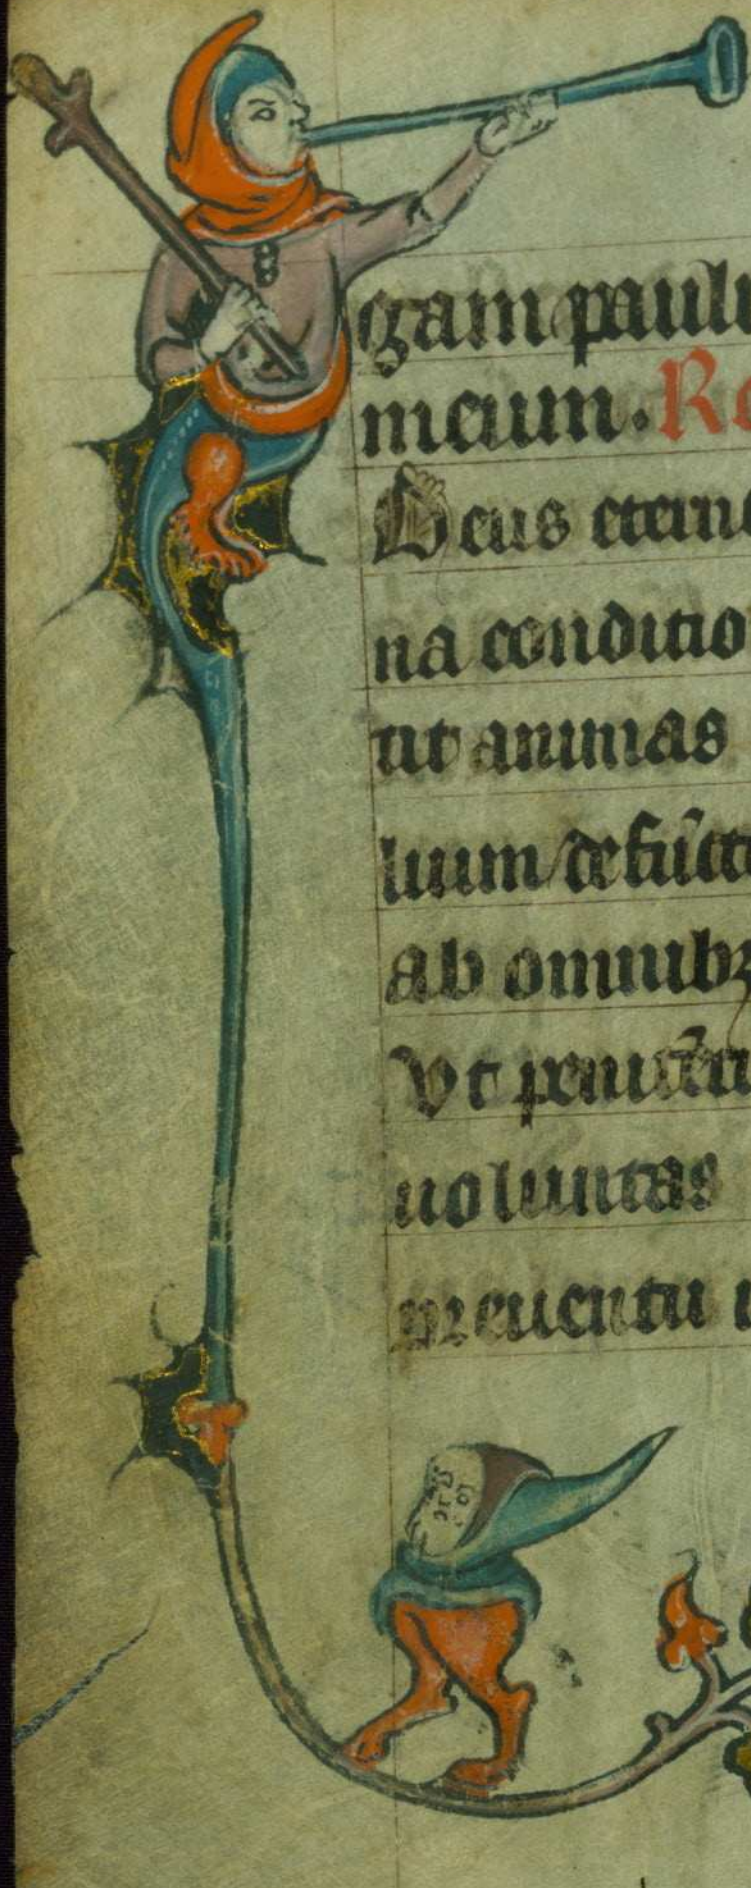 gam paulu
meum. Re
Deus eterne
na conditio
tit animas
luum defūcto
ab omnibꝫ
Vt penitēti
uoluntas
preuentu